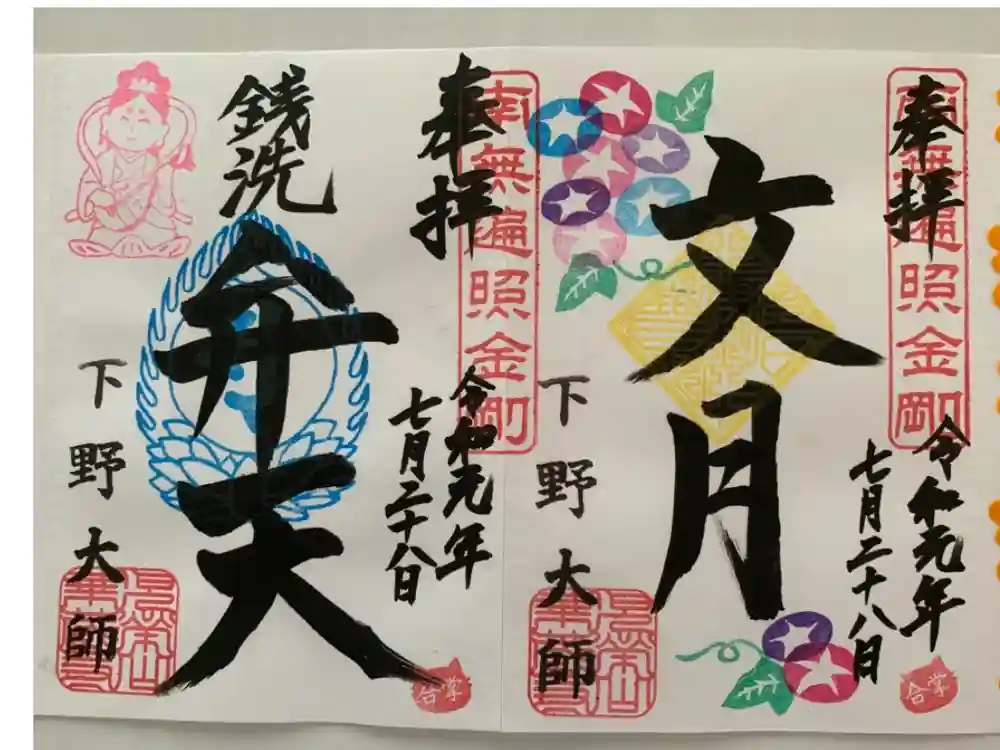 奉拝
南無遍照金剛
文月
令和元年
七月二十八日
下野大師
合掌
奉拝
南無遍照金剛
銭洗
弁天
令和元年
七月二十八日
下野大師
合掌